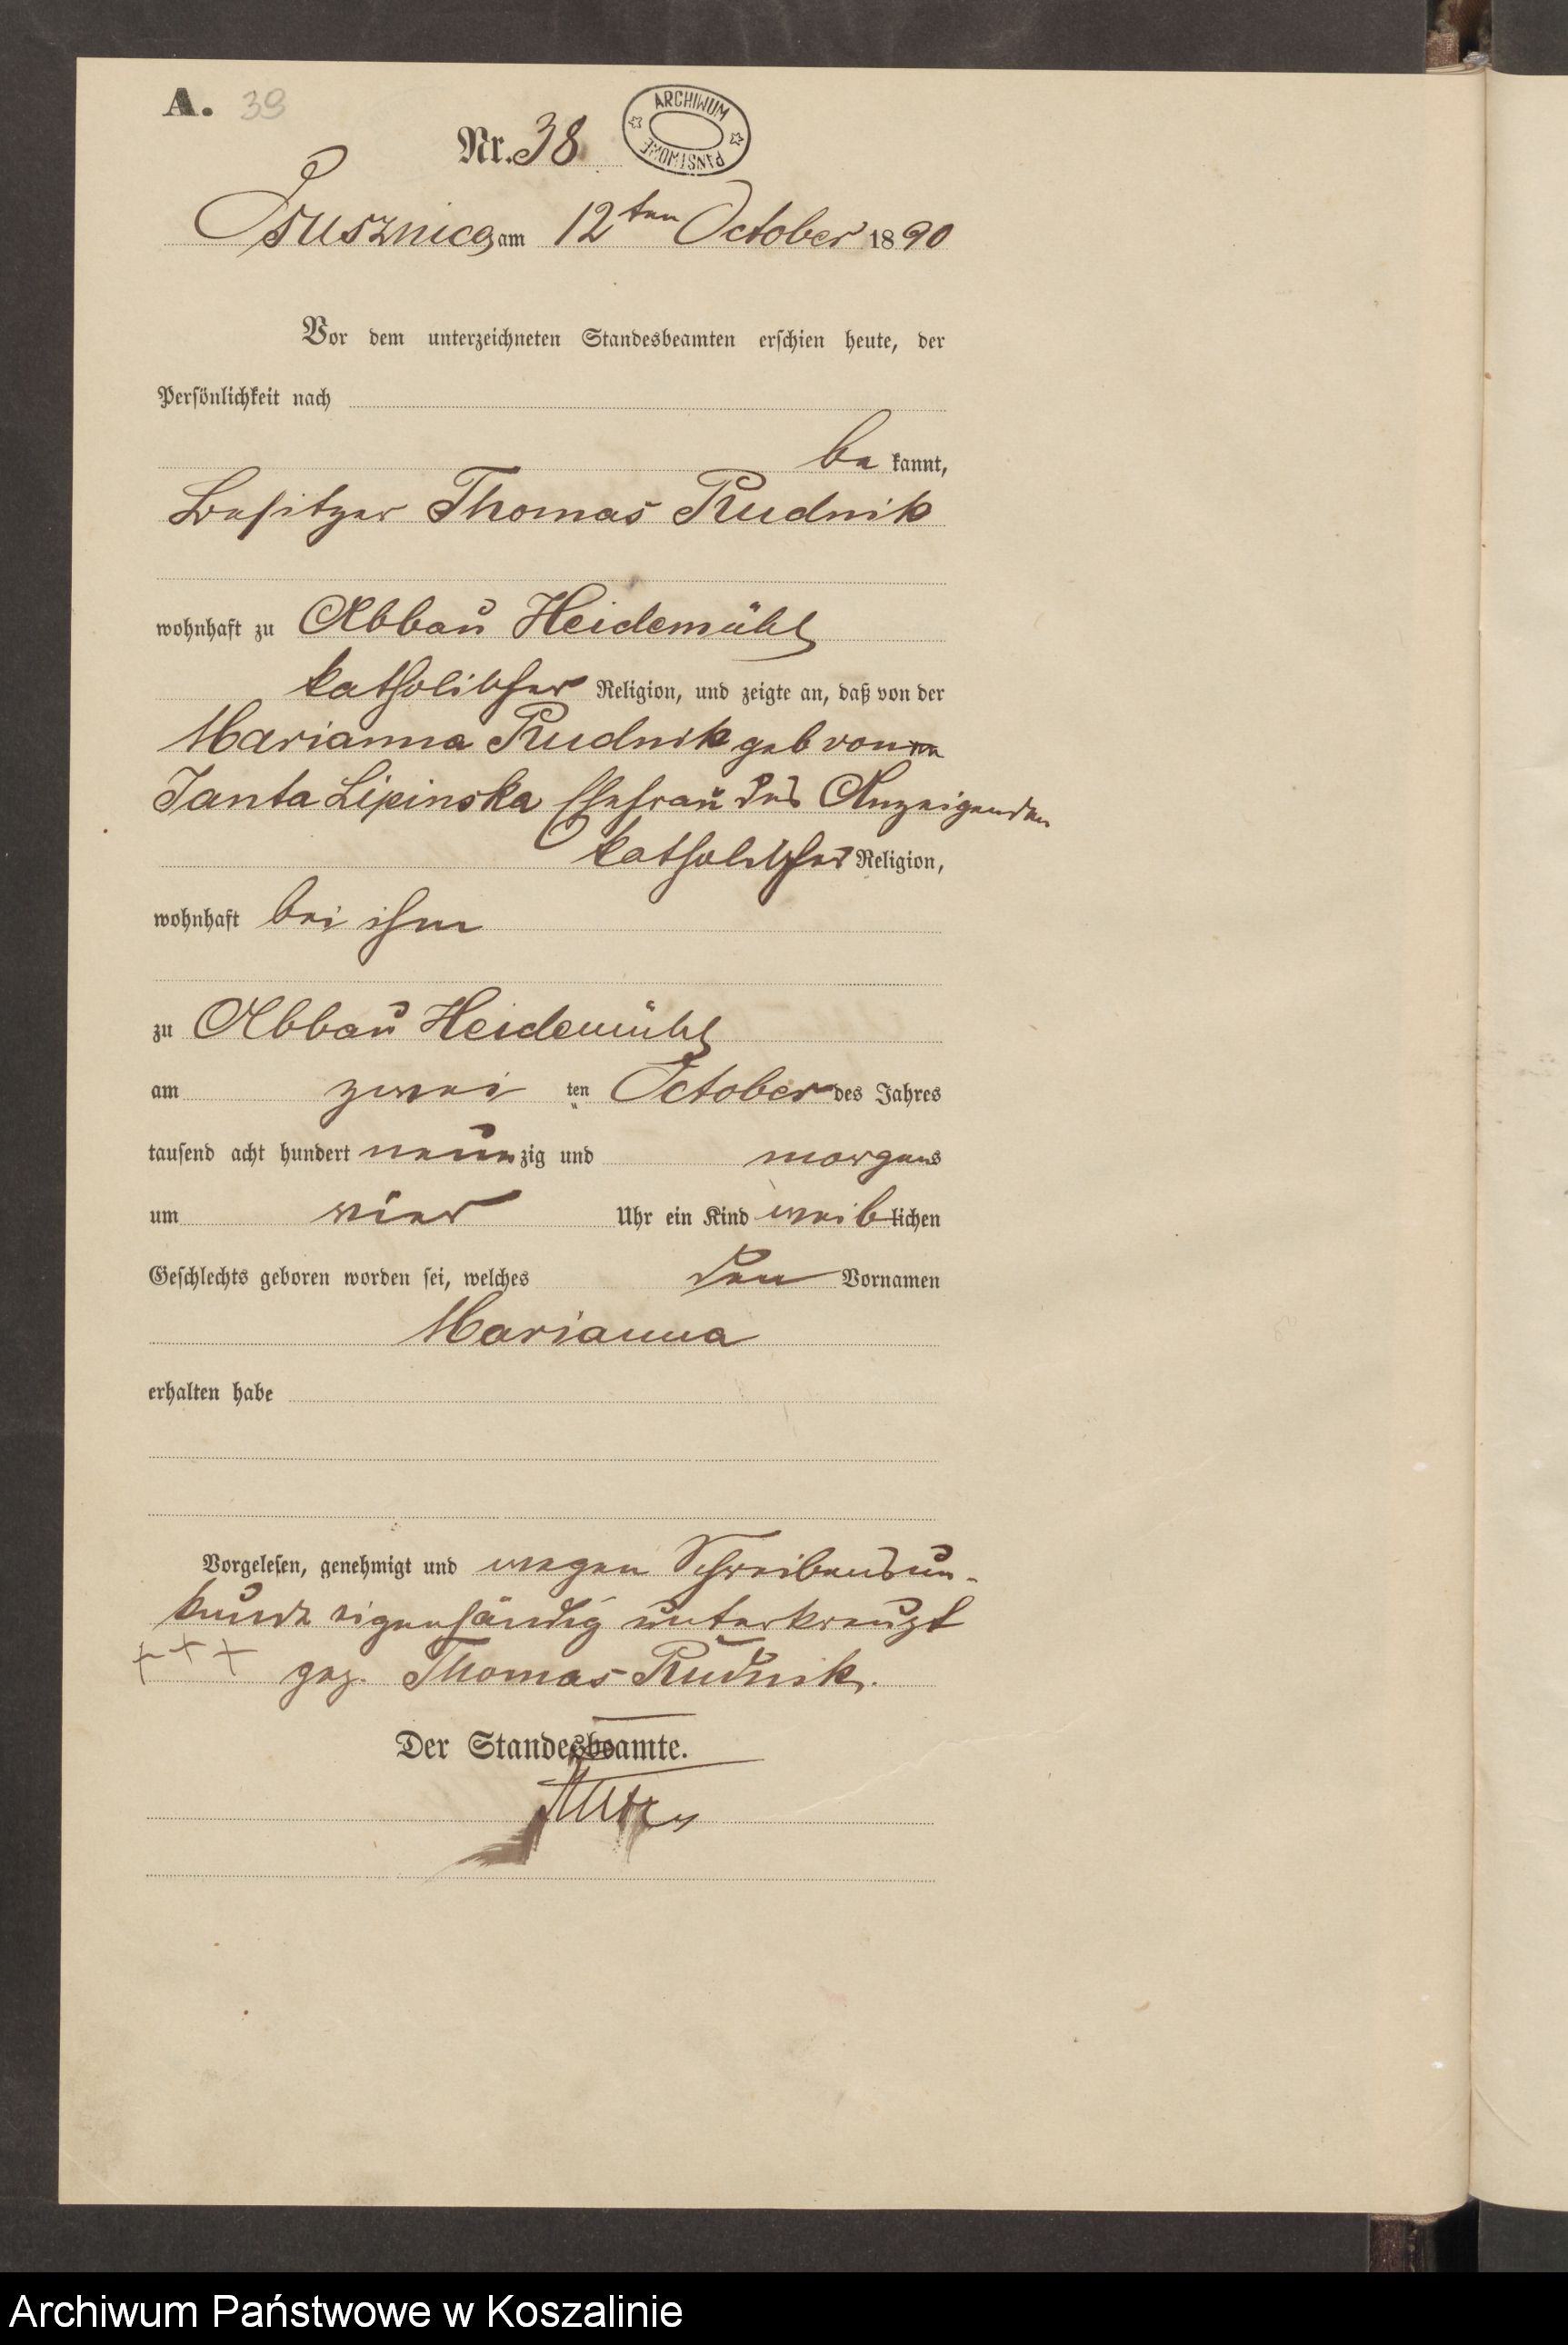 A. 39
Nr. 38
ARCHIWUM PAŃSTWOWE
am 12ten October 1890
Vor dem unterzeichneten Standesbeamten erschien heute, der
Persönlichkeit nach
be kannt,
Besitzer Thomas Rudnik
wohnhaft zu Abbau Heidemühl
katholischer Religion, und zeigte an, daß von der
Marianna Rudnik geb von
Janta Lipinska Ehefrau des Anzeigenden
katholischer Religion,
wohnhaft bei ihm
zu Abbau Heidemühl
am zwei ten October des Jahres
tausend acht hundert neunzig und morgens
um vier Uhr ein Kind weiblichen
Geschlechts geboren worden sei, welches den Vornamen
Marianna
erhalten habe
Vorgelesen, genehmigt und wegen Schreibensun-
kunde eigenhändig unterkreuzt
+++ gez. Thomas Rudnik.
Der Standesbeamte.
Archiwum Państwowe w Koszalinie